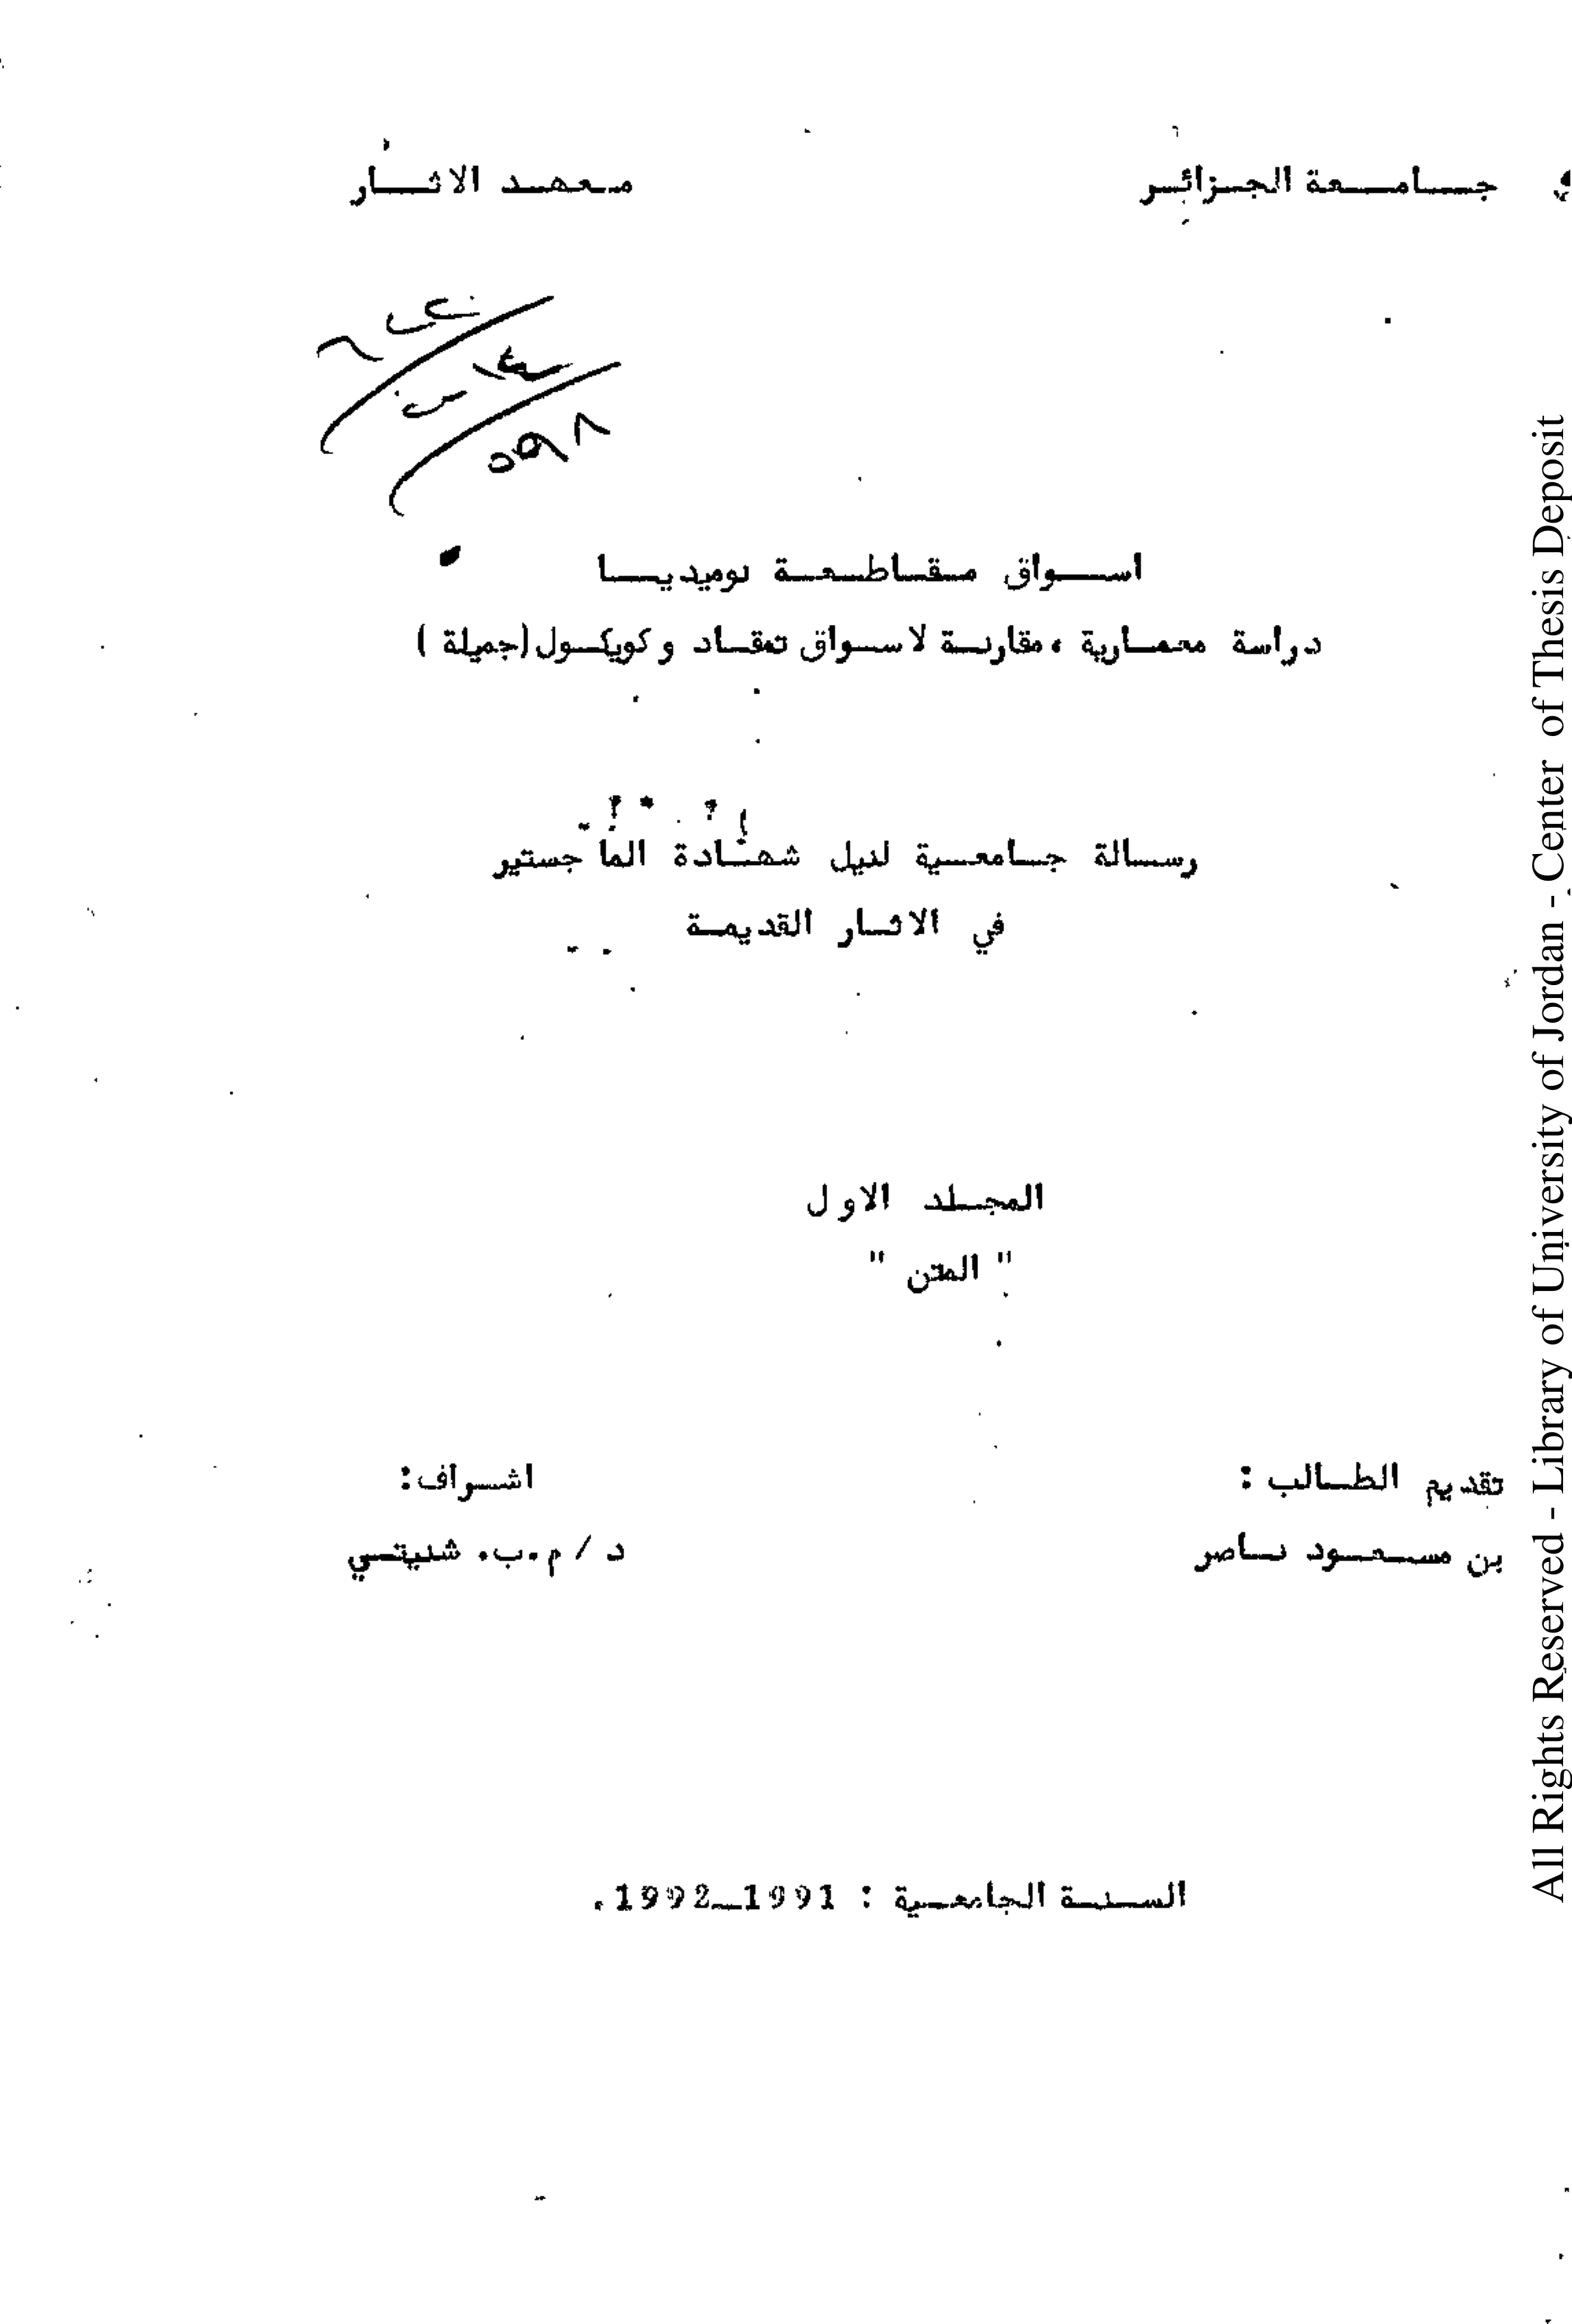 جامعة الجزائر
معهد الاثار
اسواق مقاطعة نوميديا
دراسة معمارية ، مقارنة لاسواق تمقاد و كويكول (جميلة )
رسالة جامعية لنيل شهادة الماجستير
في الاثار القديمة
المجلد الاول
" المتن "
تقديم الطالب :
بن مسعود ناصر
اشراف:
د / م.ب. شنيتي
السنة الجامعية : 1991_1992.
All Rights Reserved - Library of University of Jordan - Center of Thesis Deposit